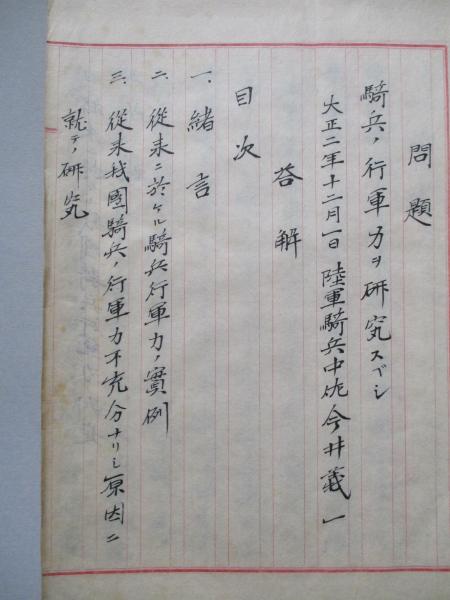 問題
騎兵ノ行軍力ヲ研究スベシ
大正二年十二月一日 陸軍騎兵中佐今井義一
答解
目次
一、緒言
二、従来ニ於ケル騎兵行軍力ノ實例
三、從来我國騎兵ノ行軍力不充分ナリシ原因ニ
就テノ研究